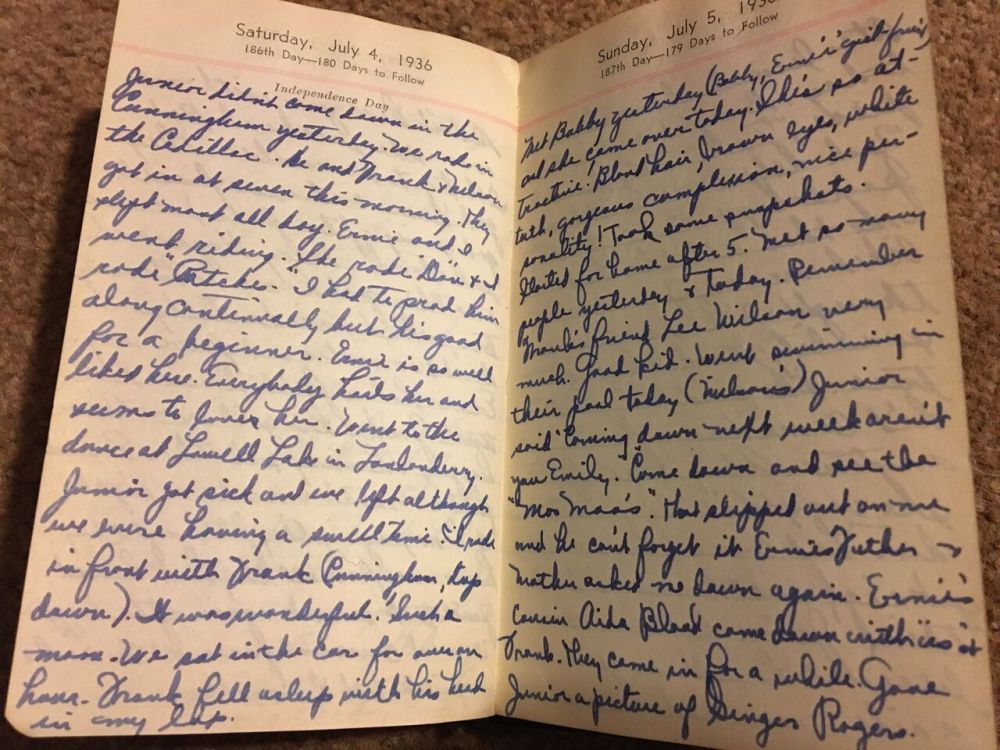 Saturday, July 4, 1936
186th Day—180 Days to Follow
Independence Day
Junior didn't come down in the
Cunningham yesterday. We rode in
the Cadillac. He and Frank & Nelson
got in at seven this morning. They
slept most all day. Ernie and I
went riding. She rode Dixie & I
rode "Patches." I had to prod him
along continually but his good
for a beginner. Ernie is so well
liked here. Everybody hails her and
seems to love her. Went to the
dance at Lowell Lake in Londonderry.
Junior got sick and we left although
we were having a swell time. I rode
in front with Frank (Cunningham, top
down). It was wonderful! Such a
moon. We sat in the car for over an
hour. Frank fell asleep with his head
in my lap.
Sunday, July 5, 1936
187th Day—179 Days to Follow
Met Bobby yesterday (Bobby, Ernie's girl friend)
and she came over today. She's so at-
tractive! Blond hair, brown eyes, white
teeth, gorgeous complexion, nice per-
sonality! Took some snapshots.
Started for home after 5. Met so many
people yesterday & today. Remember
Frank's friend Lee Wilson very
much. Good kid. Went swimming in
their pool today (Nelson's) Junior
said "Coming down next week aren't
you Emily. Come down and see the
"Moo Maa's". That slipped out on me
and he can't forget it. Ernie's Father &
Mother asked me down again. Ernie's
cousin Aida Black came down with "us" &
Frank. They came in for a while. Gave
Junior a picture of Ginger Rogers.